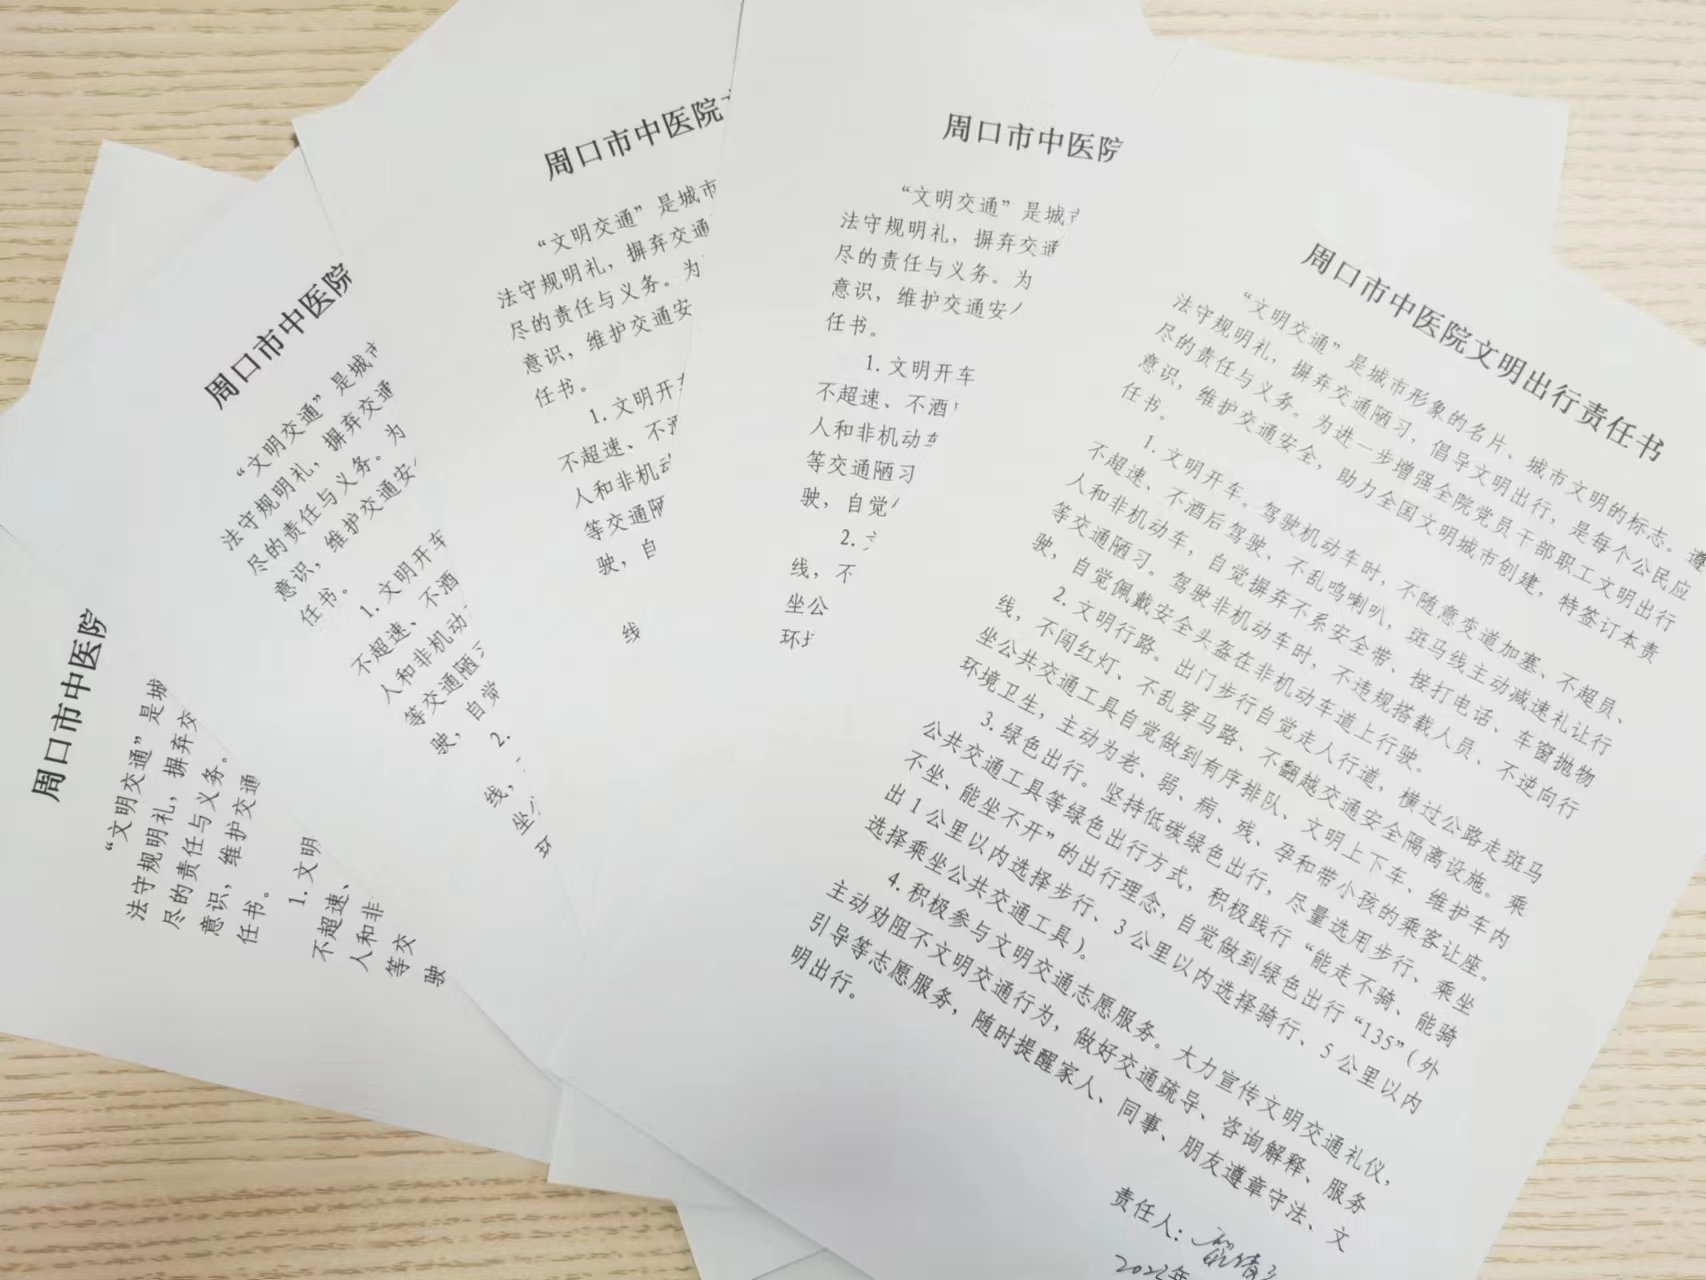 周口市中医院
“文明交通”是城
法守规明礼，摒弃交
尽的责任与义务。
意识，维护交通
任书。
1. 文明
不超速、
人和非
等交
驶
周口市中医院
“文明交通”是城
法守规明礼，摒弃交通
尽的责任与义务。为
意识，维护交通安
任书。
1. 文明开车
不超速、不酒
人和非机动
等交通陋
驶，自觉
2.
线，
坐
环
周口市中医院
“文明交通”是城市
法守规明礼，摒弃交通
尽的责任与义务。为
意识，维护交通安
任书。
1. 文明开车
不超速、不酒
人和非机动
等交通陋
驶，自
线
周口市中医院
“文明交通”是城
法守规明礼，摒弃交通
尽的责任与义务。为
意识，维护交通安
任书。
1. 文明开车
不超速、不酒
人和非机动车
等交通陋习
驶，自觉
2.
线，不
坐公
环境
周口市中医院文明出行责任书
“文明交通”是城市形象的名片、城市文明的标志。遵
法守规明礼，摒弃交通陋习，倡导文明出行，是每个公民应
尽的责任与义务。为进一步增强全院党员干部职工文明出行
意识，维护交通安全，助力全国文明城市创建，特签订本责
任书。
1. 文明开车。驾驶机动车时，不随意变道加塞、不超员、
不超速、不酒后驾驶、不乱鸣喇叭，斑马线主动减速礼让行
人和非机动车，自觉摒弃不系安全带、接打电话、车窗抛物
等交通陋习。驾驶非机动车时，不违规搭载人员、不逆向行
驶，自觉佩戴安全头盔在非机动车道上行驶。
2. 文明行路。出门步行自觉走人行道，横过公路走斑马
线，不闯红灯、不乱穿马路、不翻越交通安全隔离设施。乘
坐公共交通工具自觉做到有序排队、文明上下车、维护车内
环境卫生，主动为老、弱、病、残、孕和带小孩的乘客让座。
3. 绿色出行。坚持低碳绿色出行，尽量选用步行、乘坐
公共交通工具等绿色出行方式，积极践行“能走不骑、能骑
不坐、能坐不开”的出行理念，自觉做到绿色出行“135”（外
出1公里以内选择步行、3公里以内选择骑行、5公里以内
选择乘坐公共交通工具）。
4. 积极参与文明交通志愿服务。大力宣传文明交通礼仪，
主动劝阻不文明交通行为，做好交通疏导、咨询解释、服务
引导等志愿服务，随时提醒家人、同事、朋友遵章守法、文
明出行。
责任人：
2022年